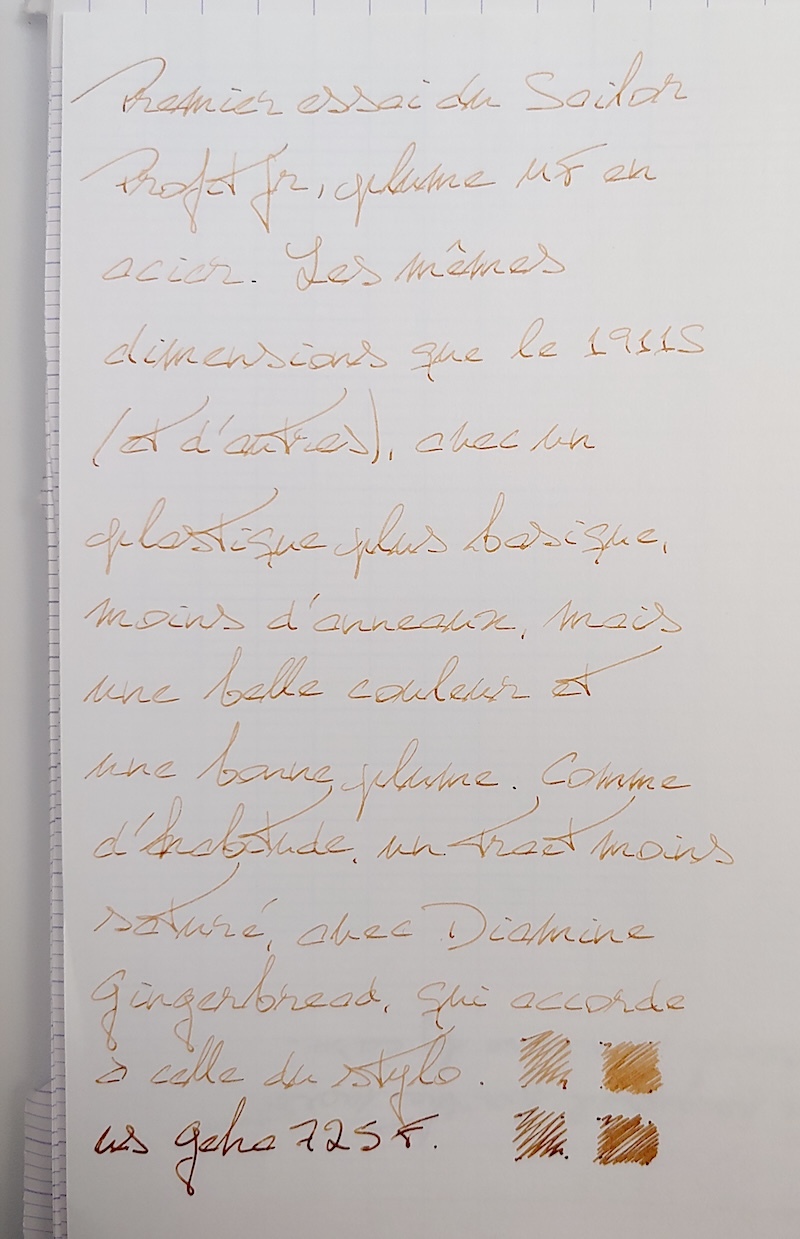 Premier essai du Sailor
Profit Jr, plume MF en
acier. Les mêmes
dimensions que le 1911S
(et d'autres), avec un
plastique plus basique,
moins d'anneaux, mais
une belle couleur et
une bonne plume. Comme
d'habitude, un trait moins
saturé, avec Diamine
Gingerbread, qui accorde
à celle du stylo.
vs Geha 725 F.